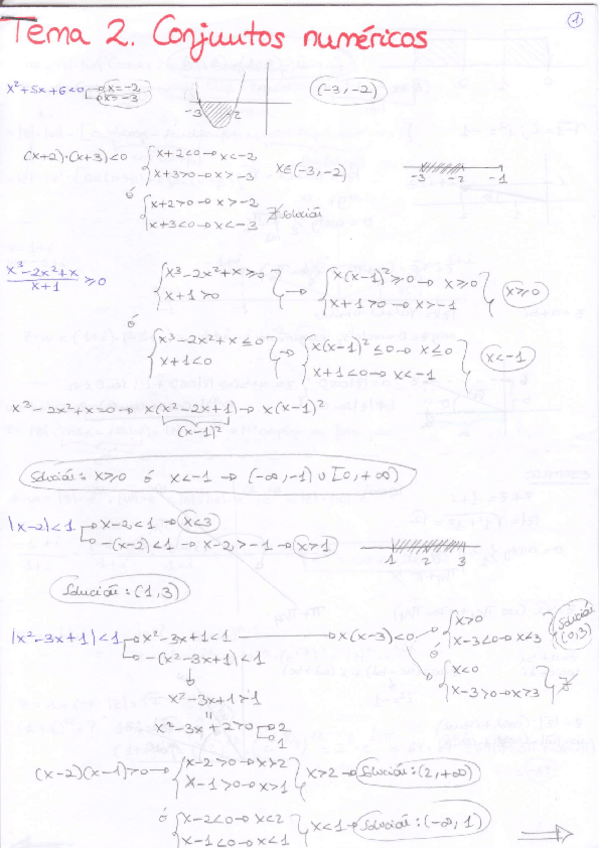 ①
Tema 2. Conjuntos numéricos
x²+5x+6<0 → x=-2
→ x=-3
-3 -2
(-3,-2)
(x+2)·(x+3)<0 { x+2<0 → x<-2
x+3>0 → x>-3 } x∈(-3,-2)
-3 -2 -1
ó
{ x+2>0 → x>-2
x+3<0 → x<-3 } ∄ solución
x³-2x²+x / x+1 ≥0 { x³-2x²+x≥0
x+1>0 } → { x(x-1)²≥0 → x≥0
x+1>0 → x>-1 } x≥0
ó
{ x³-2x²+x≤0
x+1<0 } → { x(x-1)²≤0 → x≤0
x+1<0 → x<-1 } x<-1
x³-2x²+x=0 → x(x²-2x+1) → x(x-1)²
(x-1)²
Solución: x≥0 ó x<-1 → (-∞,-1) ∪ [0,+∞)
|x-2|<1 → x-2<1 → x<3
→ -(x-2)<1 → x-2>-1 → x>1
1 2 3
Solución: (1,3)
|x²-3x+1|<1 → x²-3x+1<1 → x(x-3)<0 → { x>0
x-3<0 → x<3 } Solución (0,3)
→ -(x²-3x+1)<1
ó
{ x<0
x-3>0 → x>3 } ∄
x²-3x+1>-1
x²-3x+2>0 → 2
→ 1
(x-2)(x-1)>0 → { x-2>0 → x>2
x-1>0 → x>1 } x>2 → Solución: (2,+∞)
ó
{ x-2<0 → x<2
x-1<0 → x<1 } x<1 → Solución: (-∞,1)